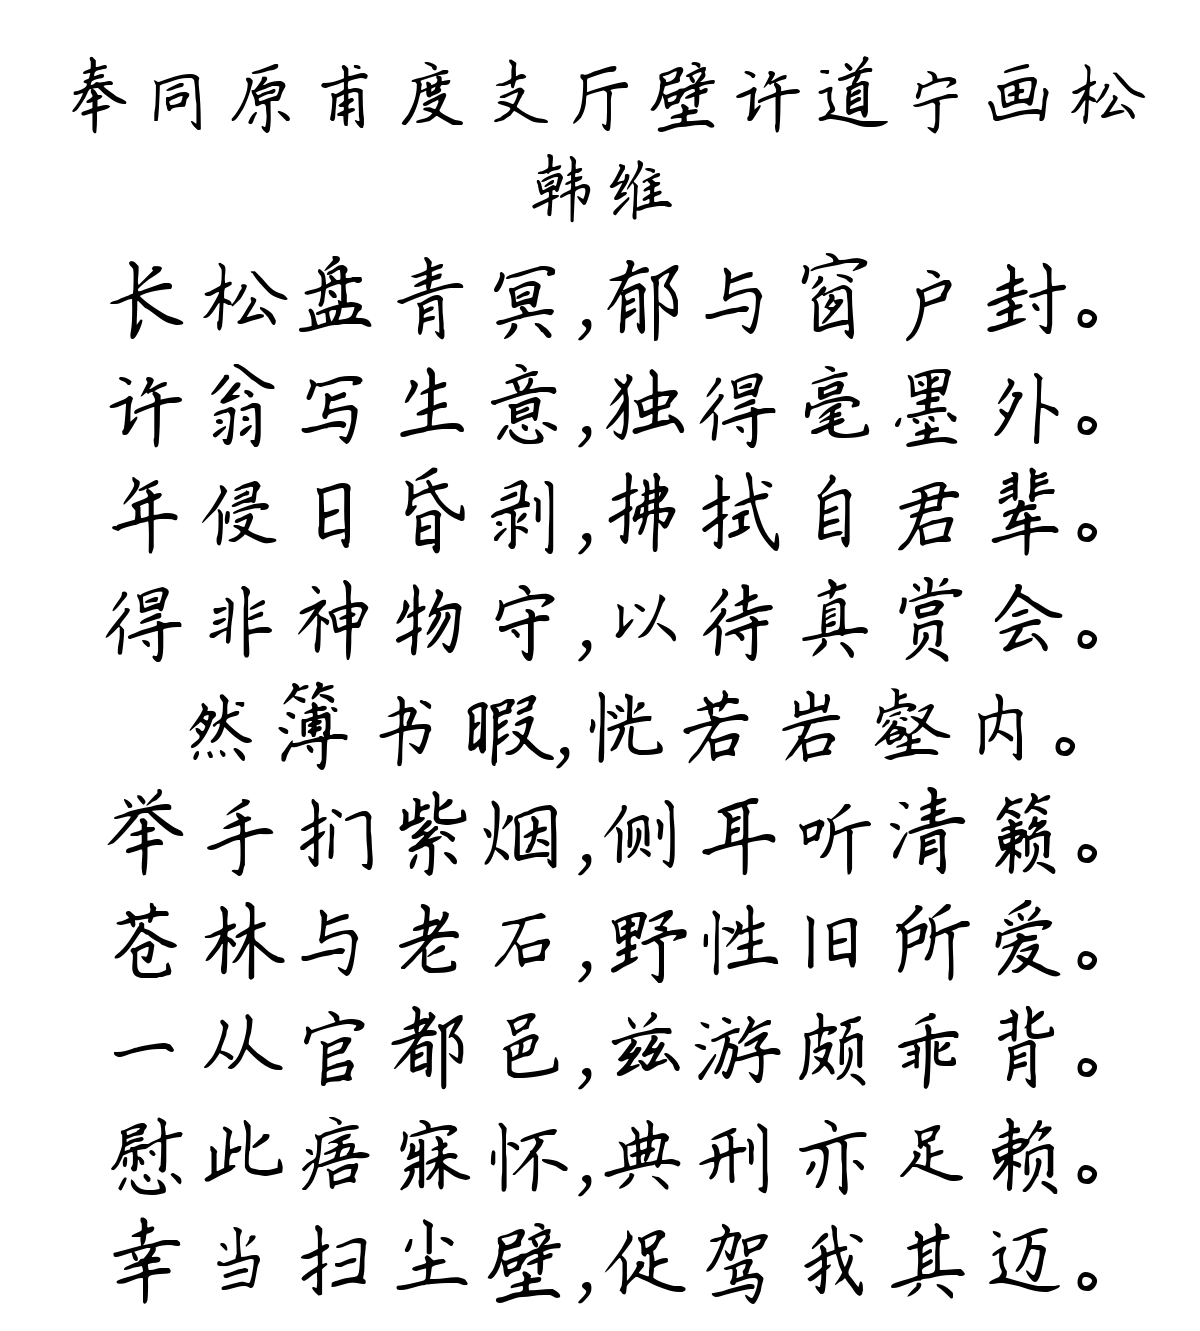 奉同原甫度支厅壁许道宁画松
韩维
长松盘青冥,郁与窗户封。
许翁写生意,独得毫墨外。
年侵日昏剥,拂拭自君辈。
得非神物守,以待真赏会。
然簿书暇,恍若岩壑内。
举手扪紫烟,侧耳听清籁。
苍林与老石,野性旧所爱。
一从官都邑,兹游颇乖背。
慰此痦寐怀,典刑亦足赖。
幸当扫尘壁,促驾我其迈。